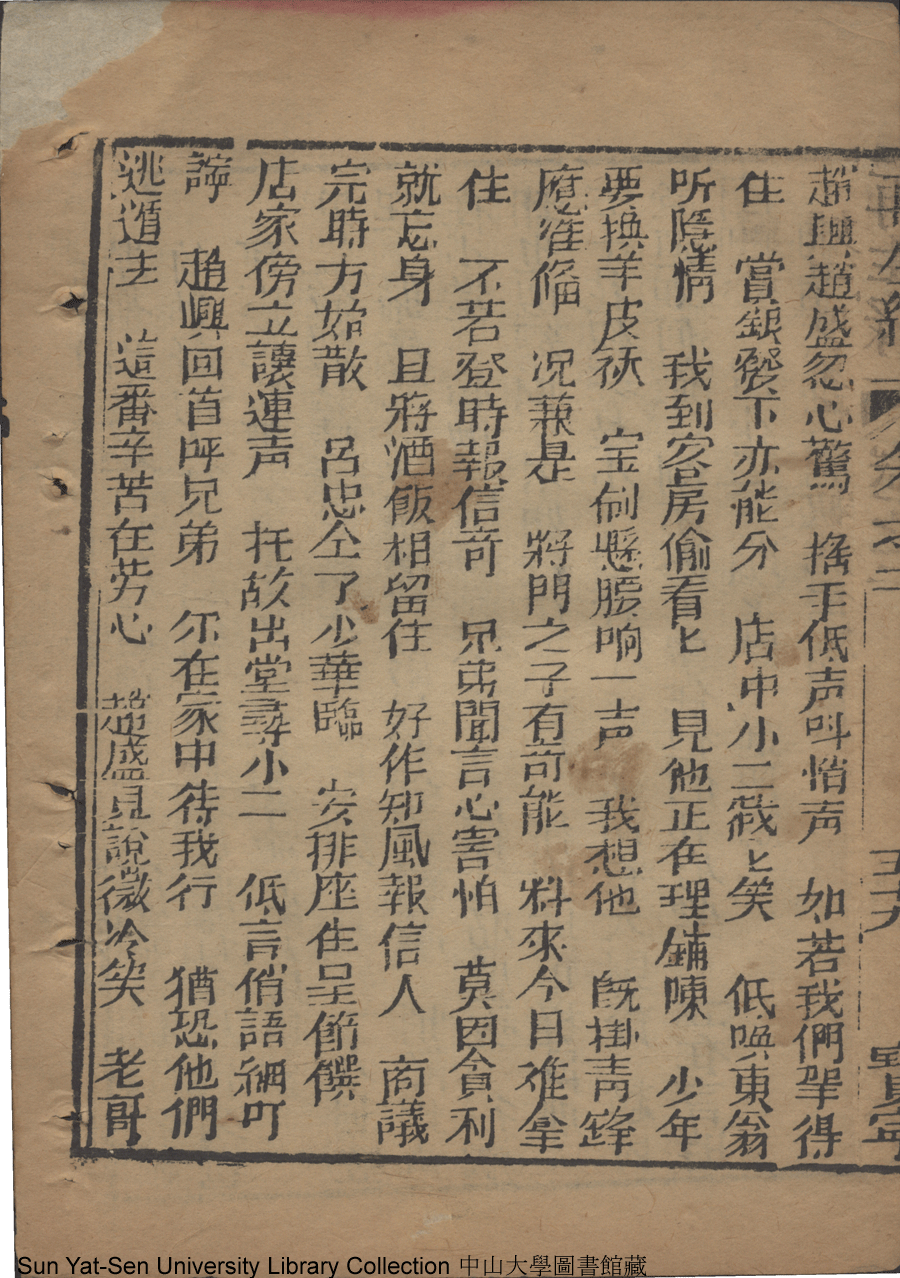 趙興趙盛忽心驚　搖手低声叫悄声　如若我們拏得
住　賞銀發下亦能分　店中小二戏〻笑　低喚東翁
听隱情　我到客房偷看〻　見他正在理鋪陳　少年
要換羊皮袄　宝劍懸腰响一声　我想他　既掛青鋒
應准備　况兼是　將門之子有苛能　料來今日难拿
住　不若登時報信奇　兄弟聞言心害怕　莫因貪利
就忘身　且將酒飯相留住　好作知風報信人　商議
完時方始散　呂忠仝了少華臨　安排座位呈餚饌
店家傍立讓連声　托故出堂尋小二　低言俏語細叮
諄　趙興回首呼兄弟　尔在家中待我行　猶恐他們
逃遁去　這番辛苦在劳心　趙盛見說微冷笑　老哥
再生緣
五十九
寶寧
Sun Yat-Sen University Library Collection 中山大學圖書館藏